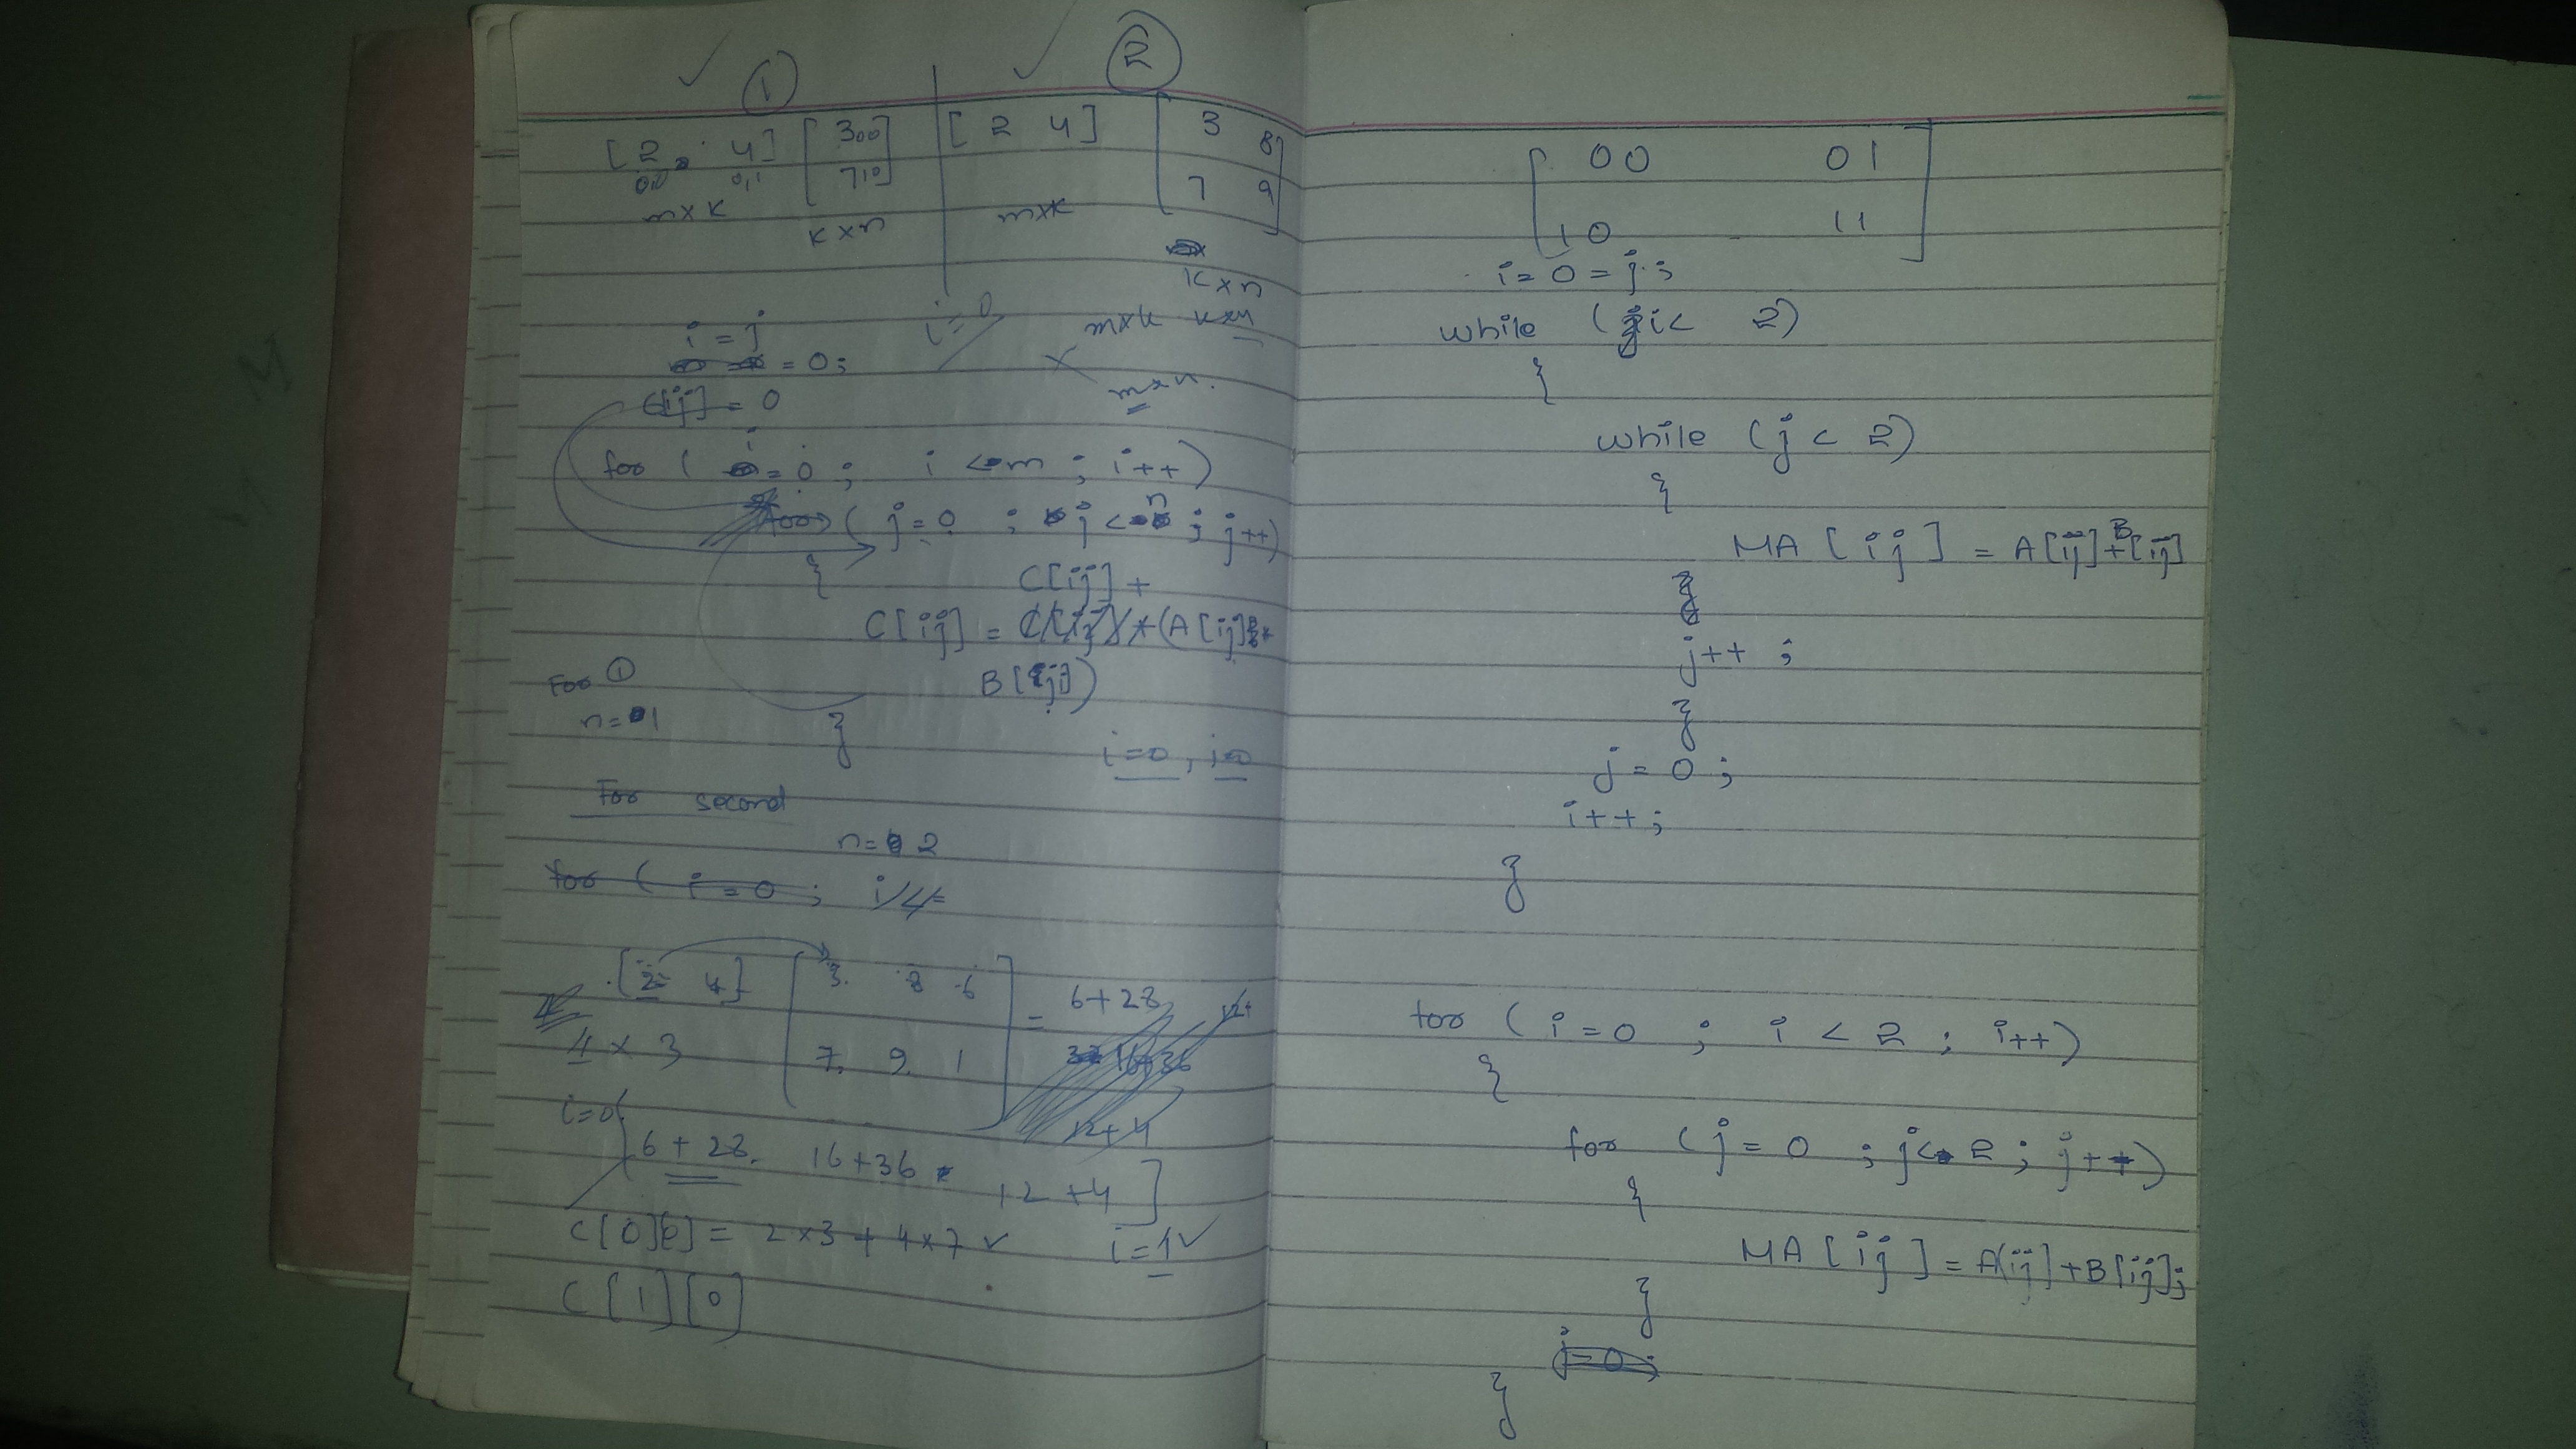 1
[ 2 4 ] [ 3 00 ] [ 2 4 ] [ 3 8 ]
0,0 0,1 [ 7 10 ] [ 7 9 ]
m x k k x n m x k
k x n
2
i = j i = 0 m x k k x n
= 0 ;
C[ij] = 0 m x n.
for ( i = 0 ; i < m ; i++ )
for ( j = 0 ; j < n ; j++ )
{
C[ij] +
C[ij] = C[ij] + (A[ij] *
B[ij])
For 1
n = 1
}
i = 0 , j = 0
For second
n = 2
for ( i = 0 ;
[ 2 4 ] [ 3 8 6 ] = 6 + 28 12+
4 x 3 [ 7 9 1 ] 16+36
12+4
i = 0
[ 6 + 28 16 + 36 12 + 4 ]
C[0][0] = 2 x 3 + 4 x 7 ✓ i = 1 ✓
C[1][0]
[ 00 01 ]
[ 10 11 ]
i = 0 = j ;
while ( i < 2 )
{
while ( j < 2 )
{
MA [ i j ] = A[ij] + B[ij]
j++ ;
}
j = 0 ;
i++ ;
}
for ( i = 0 ; i < 2 ; i++ )
{
for ( j = 0 ; j < 2 ; j++ )
{
MA [ i j ] = A[ij] + B[ij] ;
}
j = 0 ;
}